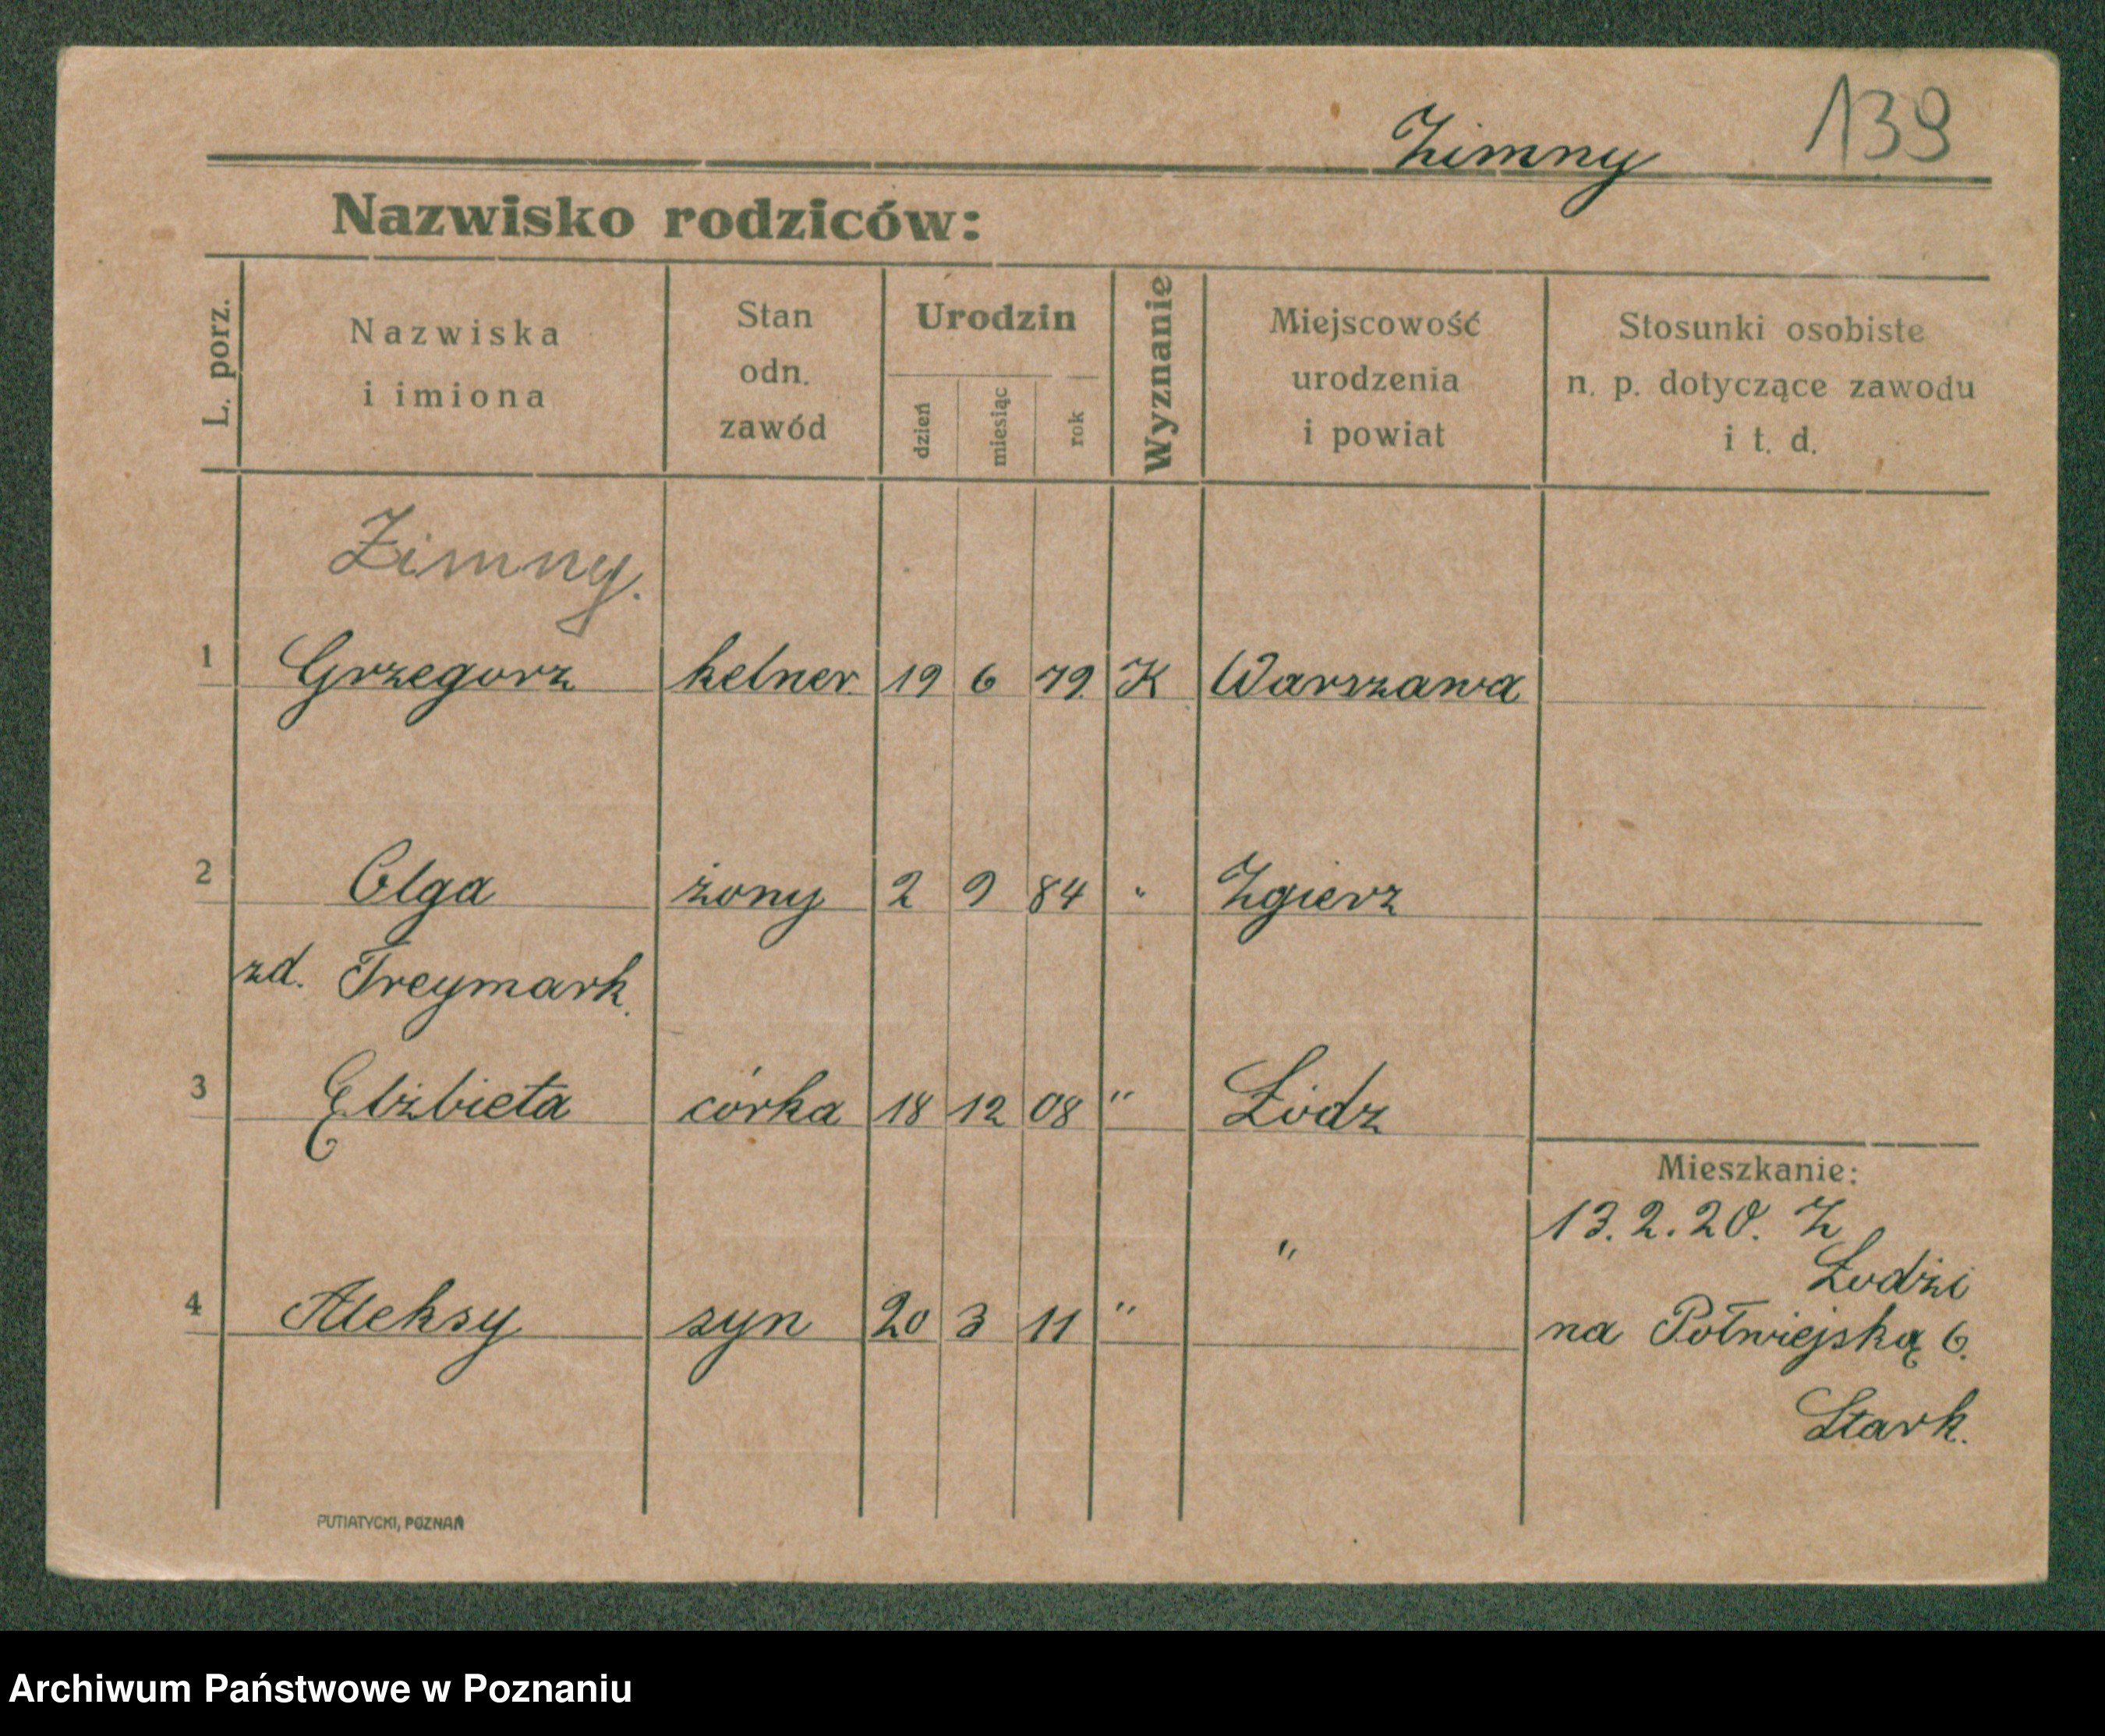 Zimny 139
Nazwisko rodziców:
L. porz.
Nazwiska
i imiona
Stan
odn.
zawód
Urodzin
dzień
miesiąc
rok
Wyznanie
Miejscowość
urodzenia
i powiat
Stosunki osobiste
n. p. dotyczące zawodu
i t. d.
Zimny.
1 Grzegorz kelner. 19 6 79. K Warszawa
2 Olga żony 2 9 84 " Zgierz
zd. Freymark.
3 Elżbieta córka 18 12 08 " Łódz
Mieszkanie:
13.2.20. Z
Łodzi
4 Aleksy syn 20 3 11 " "
na Półwiejską 6.
Stark.
PUTIATYCKI, POZNAŃ
Archiwum Państwowe w Poznaniu